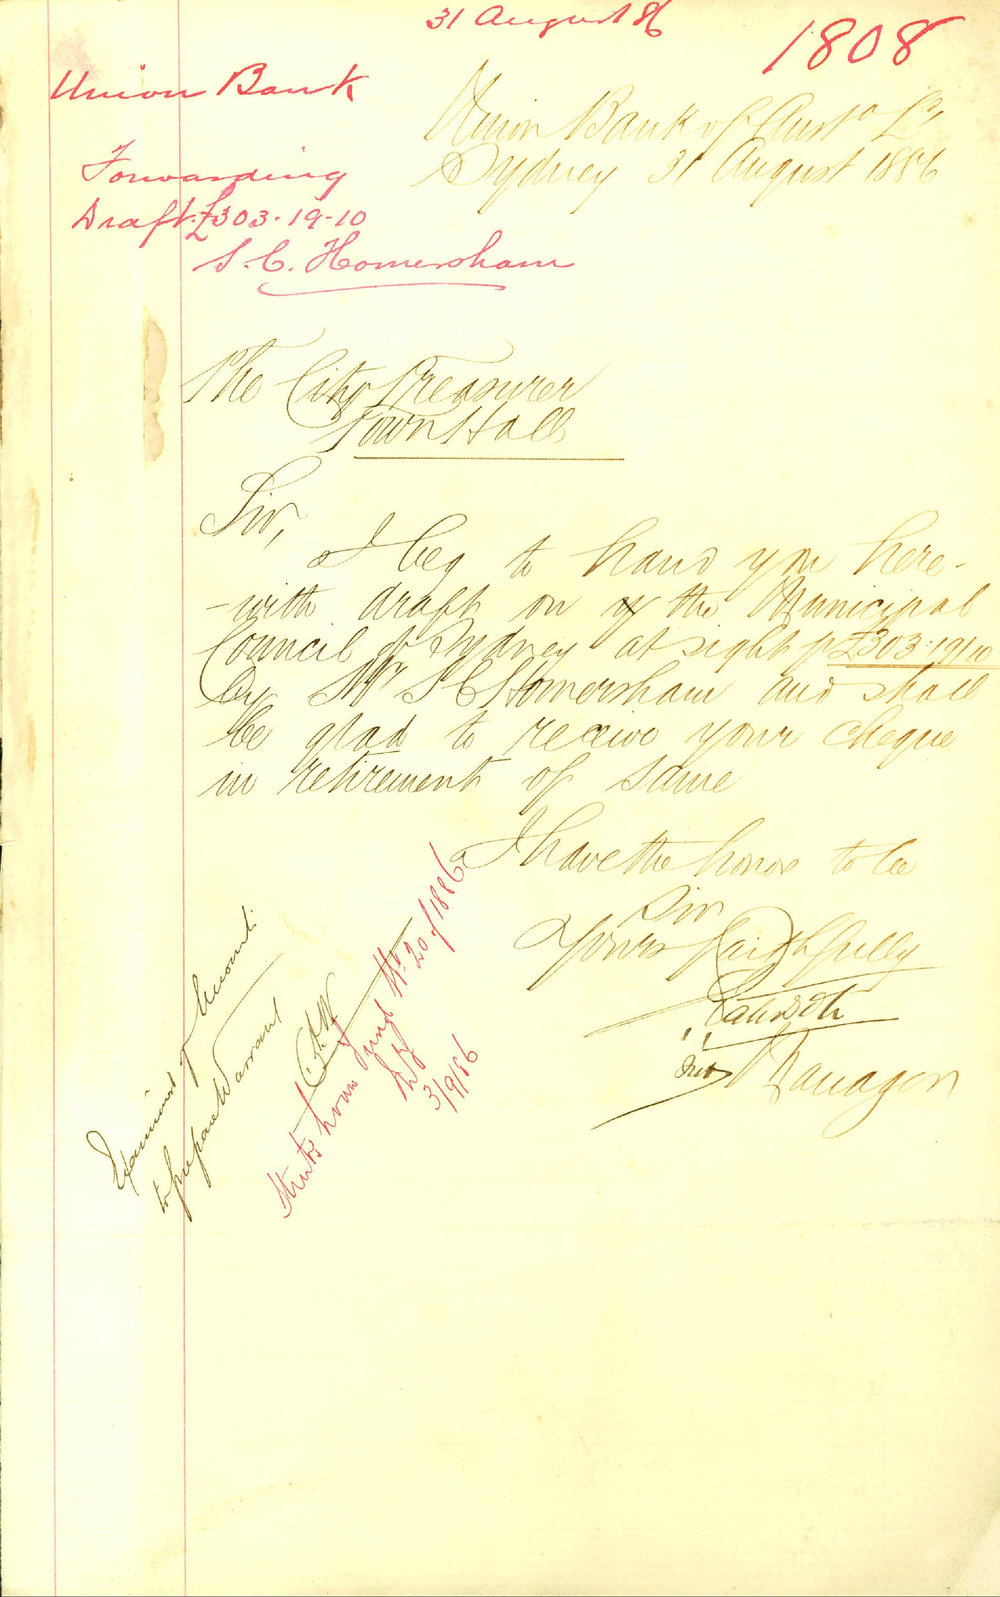 31 August 86
1808
Union Bank
Forwarding
Draft £303-19-10
S. C. Homersham
Union Bank of Austa Ld
Sydney 31 August 1886
The City Treasurer
Town Hall
Sir,
I beg to hand you here-
-with draft on the Municipal
Council of Sydney at sight p £303.19/10
by Mr S C Homersham and shall
be glad to receive your cheque
in retirement of same
I have the honor to be
Sir
Yours faithfully
Manager
Examiner of Accounts
to prepare Warrant
Streets Loan Fund No. 20 of 1886
3/9/86